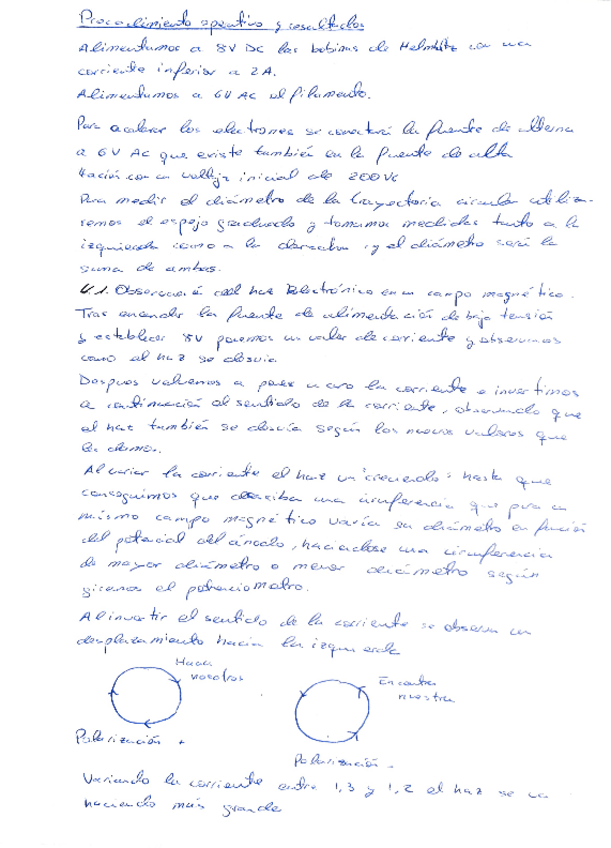 Procedimiento operativo y resultados
Alimentamos a 8V DC las bobinas de Helmholtz con una
corriente inferior a 2A.
Alimentamos a 6V AC el filamento.
Para acelerar los electrones se conectará la fuente de alterna
a 6V AC que existe también en la fuente de alta
tensión con un voltaje inicial de 200V
Para medir el diámetro de la trayectoria circular utiliza-
remos el espejo graduado y tomamos medidas tanto a la
izquierda como a la derecha, y el diámetro será la
suma de ambas.
4.1. Observación del haz Electrónico en un campo magnético.
Tras encender la fuente de alimentación de baja tensión
y establecer 8V ponemos un valor de corriente y observamos
como el haz se desvía.
Despues volvemos a poner a cero la corriente e invertimos
a continuación el sentido de la corriente, observando que
el haz también se desvía según los nuevos valores que
le damos.
Al variar la corriente el haz va "creciendo" hasta que
conseguimos que describa una circunferencia que para un
mismo campo magnético varía su diámetro en función
del potencial del ánodo, haciendose una circunferencia
de mayor diámetro o menor diámetro según
giramos el potenciometro.
Al invertir el sentido de la corriente se observa un
desplazamiento hacia la izquierda
Hacia
nosotros
En contra
nuestra
Polarización +
Polarización -
Variando la corriente entre 1,3 y 1,2 el haz se va
haciendo más grande